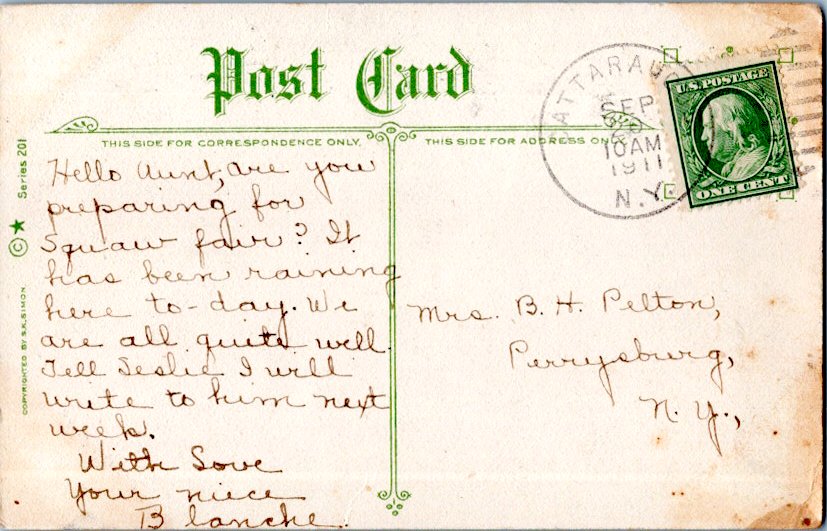 Post Card
THIS SIDE FOR CORRESPONDENCE ONLY.
THIS SIDE FOR ADDRESS ON
Series 201
COPYRIGHTED BY S.K.SIMON.
Hello Aunt, are you
preparing for
Squaw fair? It
has been raining
here to-day. We
are all quite well.
Tell Leslie I will
write to him next
week.
With Love
Your niece
Blanche.
CATTARAUG
SEP
10AM
1911
N.Y.
U.S. POSTAGE
ONE CENT
Mrs. B. H. Pelton,
Perrysburg,
N. Y.,